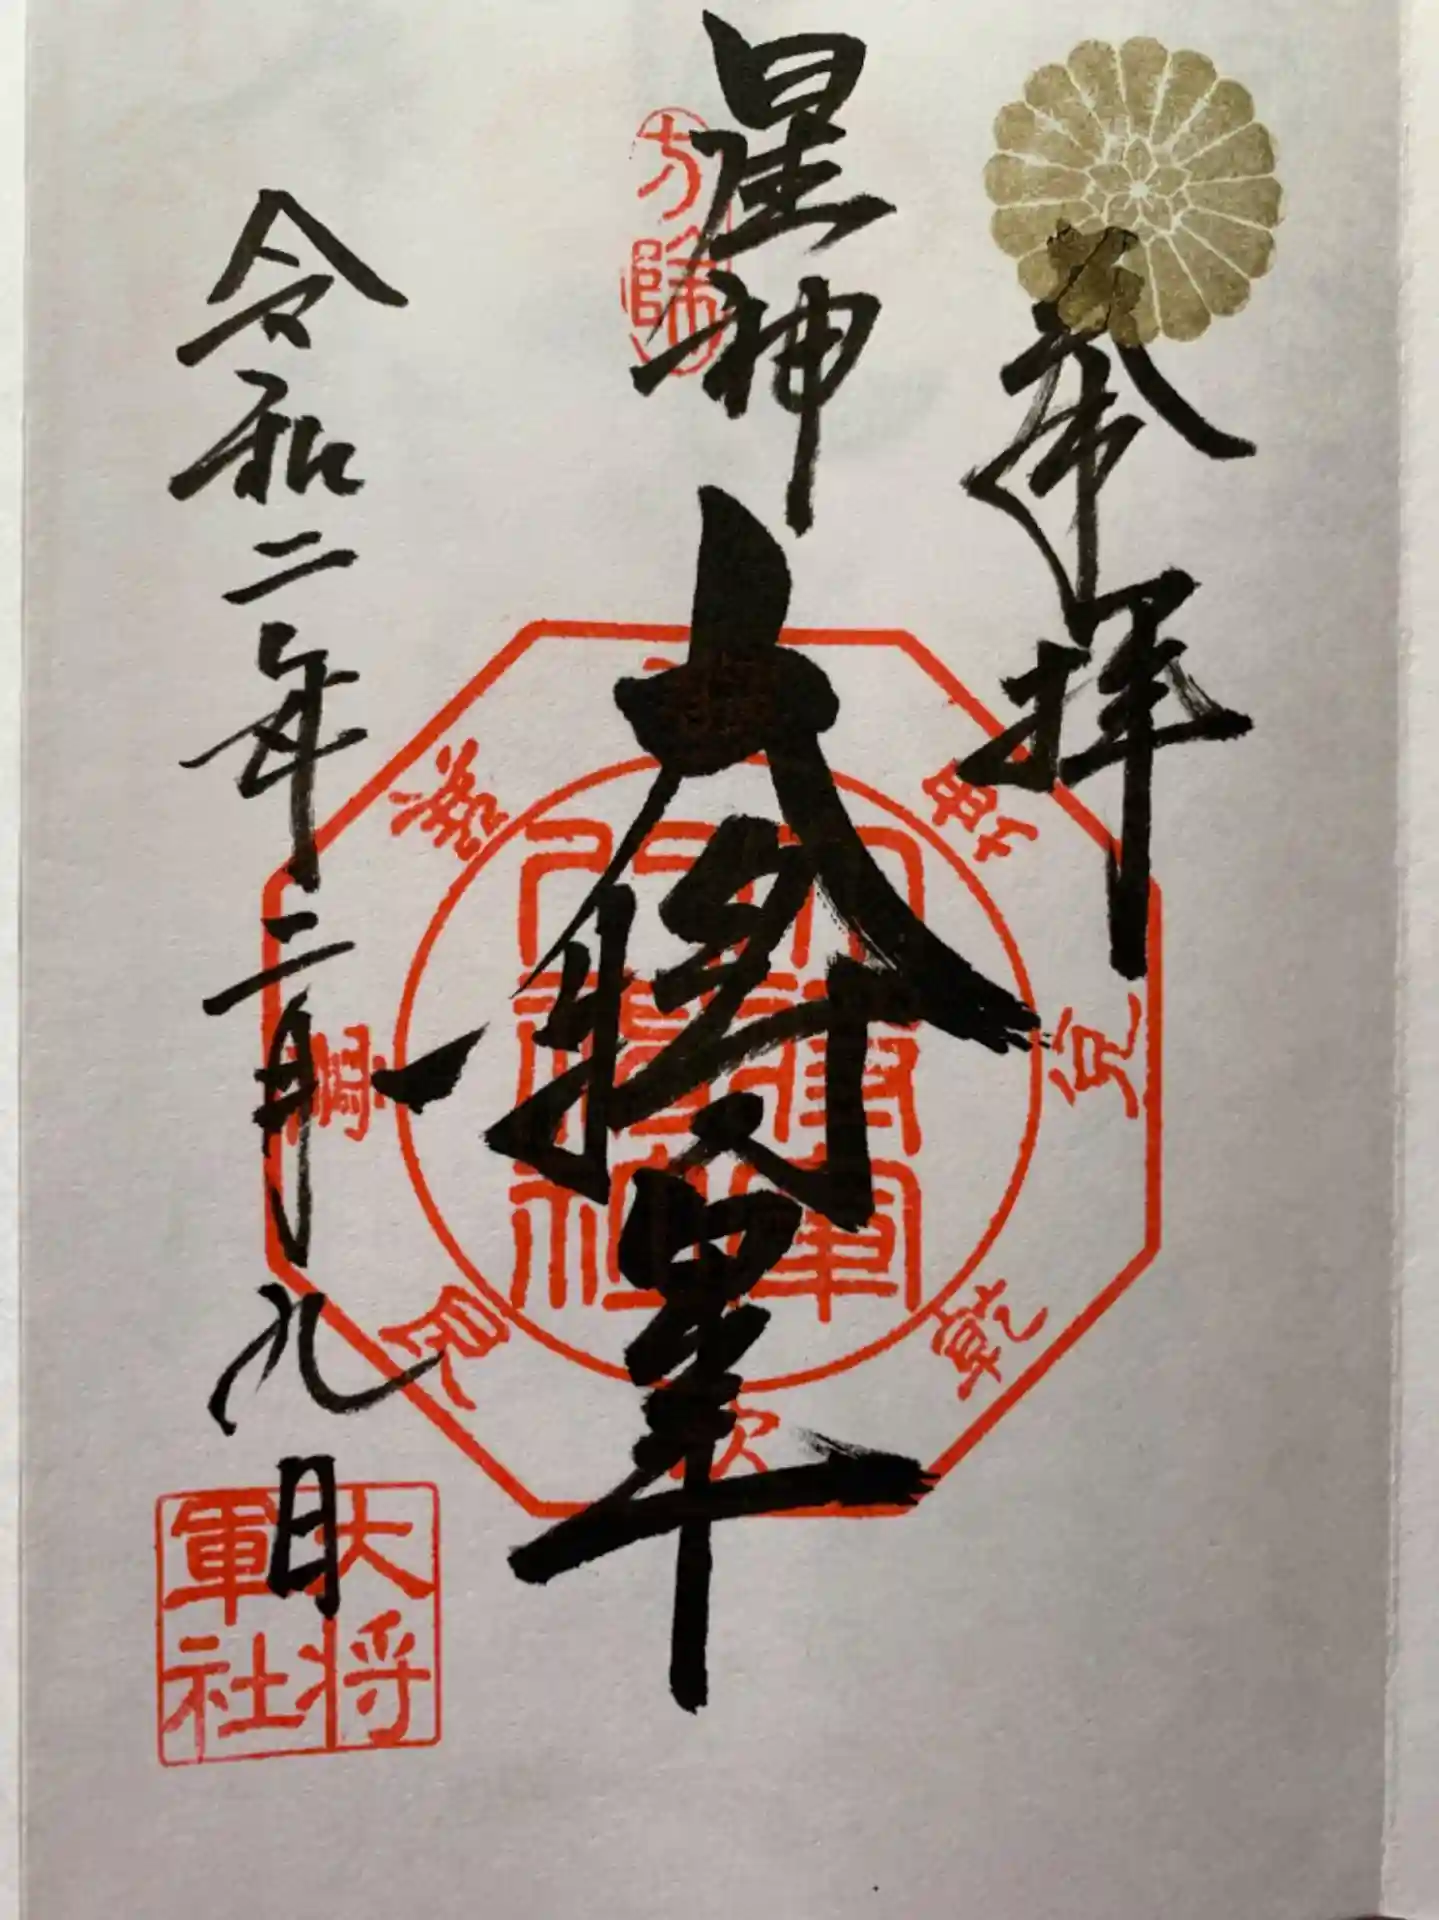 奉拝
星神
大将軍
令和二年二月九日
方除
大将軍社
坤
兌
乾
坎
艮